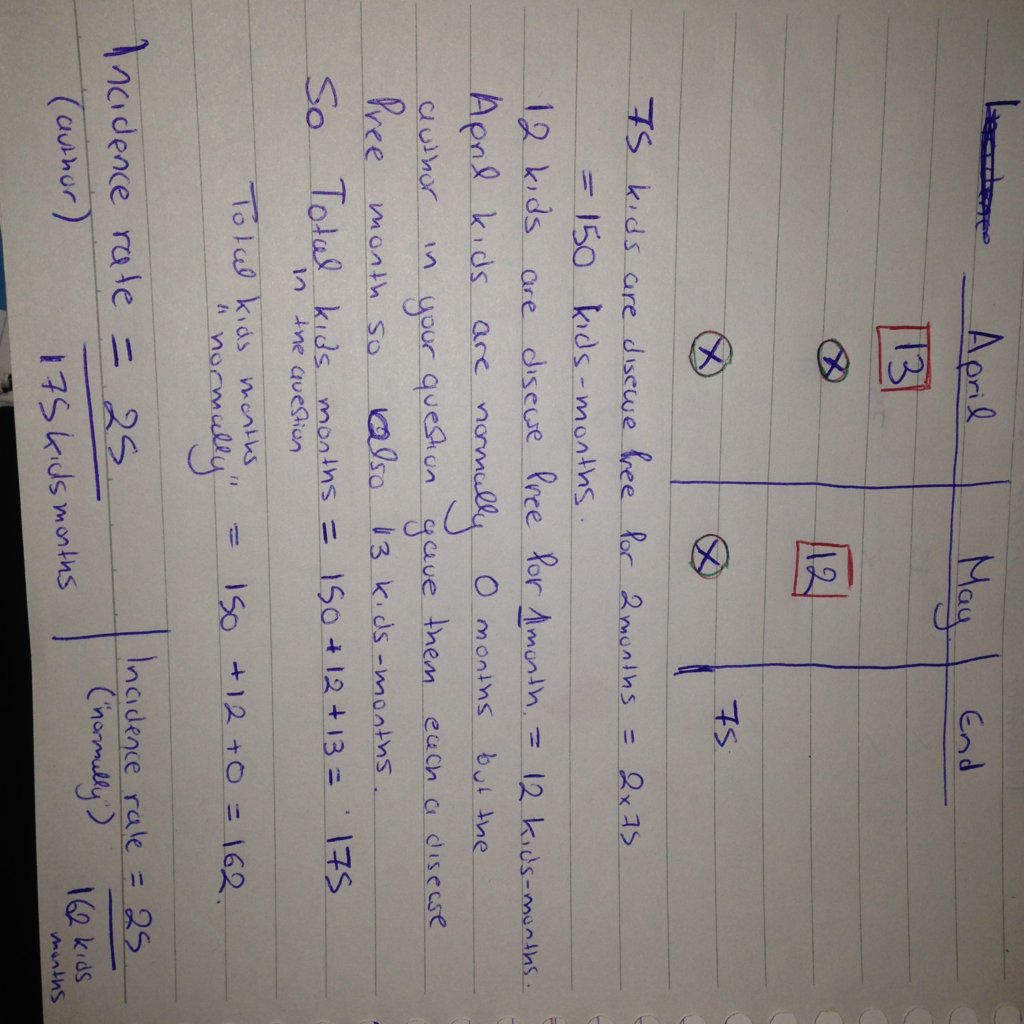 April May End
13
X 12
X X 75
75 kids are disease free for 2 months = 2x75
= 150 kids-months.
12 kids are disease free for 1 month. = 12 kids-months.
April kids are normally 0 months but the
author in your question gave them each a disease
free month so also 13 kids-months.
So Total kids months = 150 + 12 + 13 = 175
in the question
Total kids months = 150 + 12 + 0 = 162.
"normally"
Incidence rate = 25
(author) 175 kids months
Incidence rate = 25
("normally") 162 kids
months